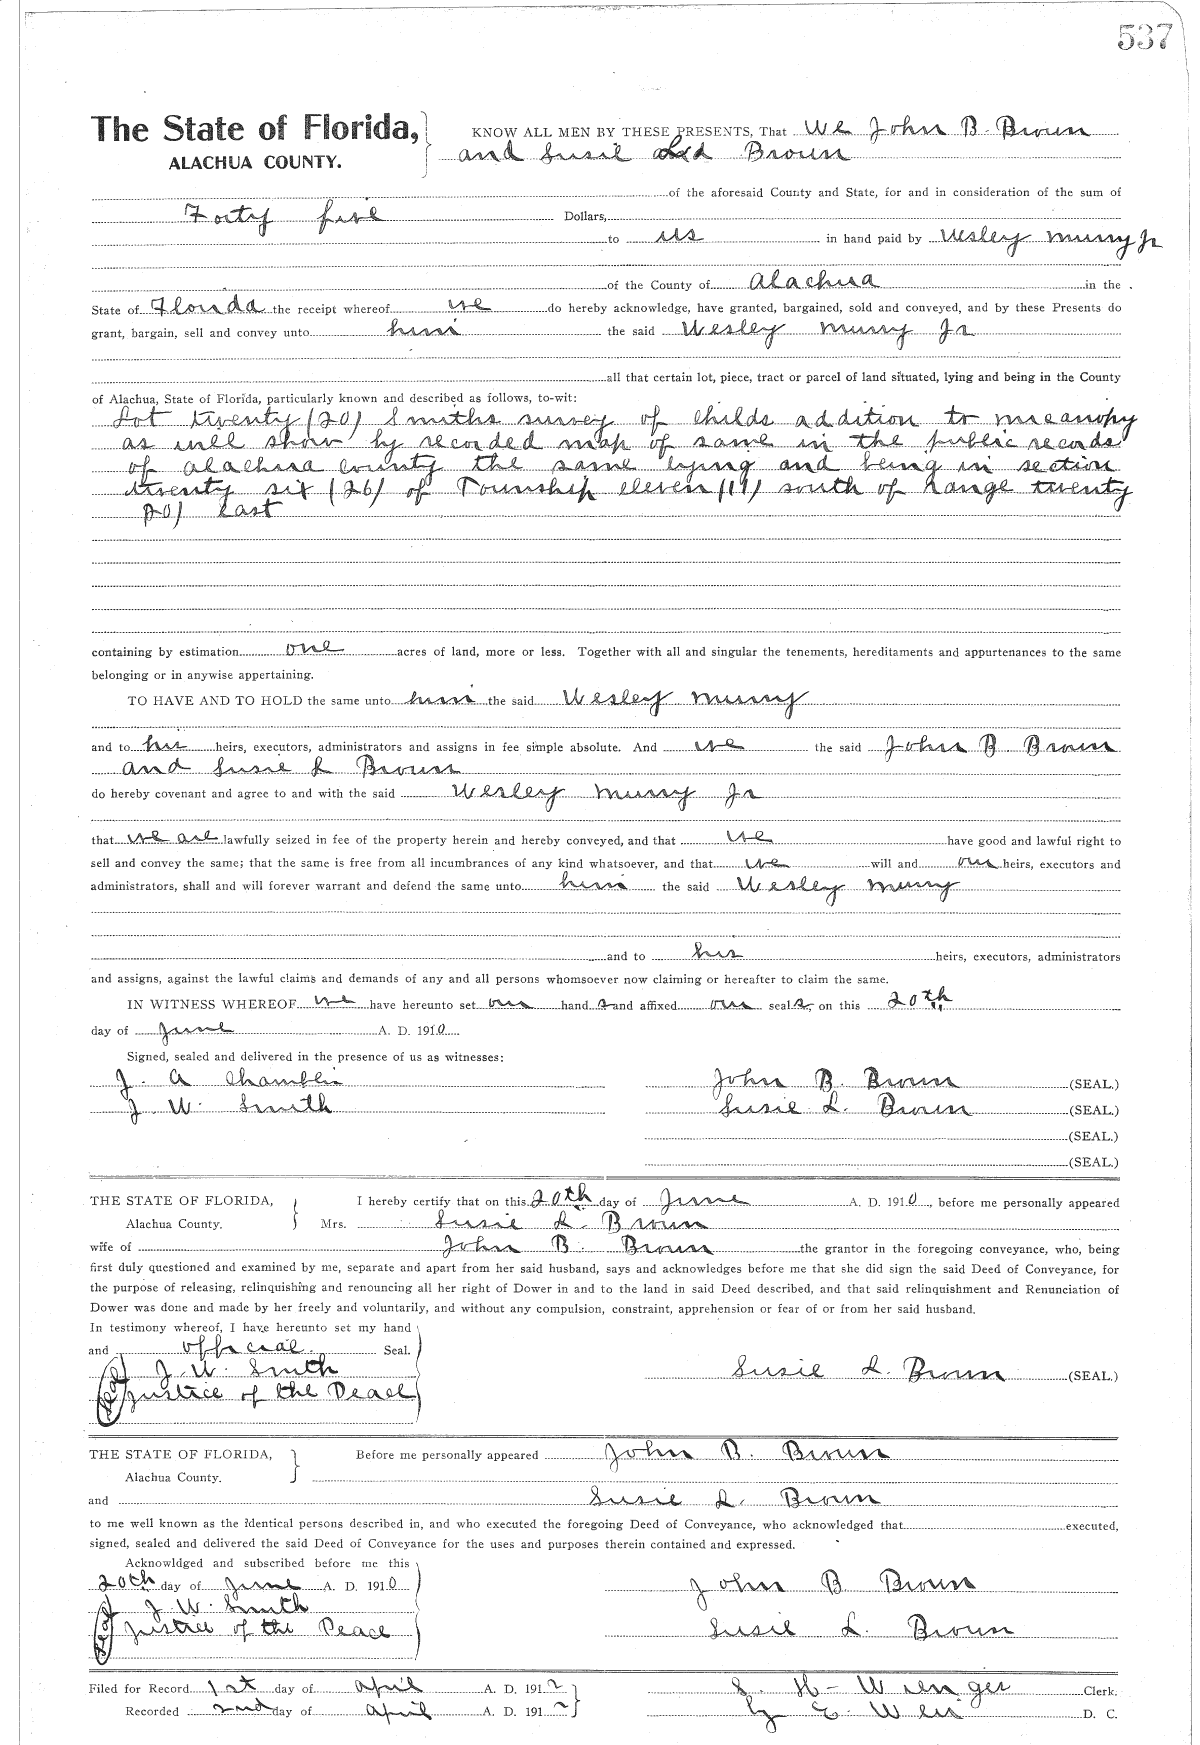 537
The State of Florida, KNOW ALL MEN BY THESE PRESENTS, That We John B. Brown
ALACHUA COUNTY. and Susie Brown
of the aforesaid County and State, for and in consideration of the sum of
Forty five Dollars,
to us in hand paid by Wesley Murry Jr
of the County of Alachua in the
State of Florida the receipt whereof we do hereby acknowledge, have granted, bargained, sold and conveyed, and by these Presents do
grant, bargain, sell and convey unto him the said Wesley Murry Jr
all that certain lot, piece, tract or parcel of land situated, lying and being in the County
of Alachua, State of Florida, particularly known and described as follows, to-wit:
Lot twenty (20) Smiths survey of Childs addition to Micanopy
as will show by recorded map of same in the public records
of Alachua County the same lying and being in section
twenty six (26) of Township eleven (11) south of Range twenty
(20) East
containing by estimation one acres of land, more or less. Together with all and singular the tenements, hereditaments and appurtenances to the same
belonging or in anywise appertaining.
TO HAVE AND TO HOLD the same unto him the said Wesley Murry
and to his heirs, executors, administrators and assigns in fee simple absolute. And we the said John B Brown
and Susie L Brown
do hereby covenant and agree to and with the said Wesley Murry Jr
that we are lawfully seized in fee of the property herein and hereby conveyed, and that we have good and lawful right to
sell and convey the same; that the same is free from all incumbrances of any kind whatsoever, and that we will and our heirs, executors and
administrators, shall and will forever warrant and defend the same unto him the said Wesley Murry
and to his heirs, executors, administrators
and assigns, against the lawful claims and demands of any and all persons whomsoever now claiming or hereafter to claim the same.
IN WITNESS WHEREOF we have hereunto set our hand s and affixed our seal s on this 20th
day of June A. D. 1910
Signed, sealed and delivered in the presence of us as witnesses:
J. A Chamblin John B. Brown (SEAL.)
J W. Smith Susie L. Brown (SEAL.)
(SEAL.)
(SEAL.)
THE STATE OF FLORIDA, I hereby certify that on this 20th day of June A. D. 1910, before me personally appeared
Alachua County. Mrs. Susie L. Brown
wife of John B. Brown the grantor in the foregoing conveyance, who, being
first duly questioned and examined by me, separate and apart from her said husband, says and acknowledges before me that she did sign the said Deed of Conveyance, for
the purpose of releasing, relinquishing and renouncing all her right of Dower in and to the land in said Deed described, and that said relinquishment and Renunciation of
Dower was done and made by her freely and voluntarily, and without any compulsion, constraint, apprehension or fear of or from her said husband.
In testimony whereof, I have hereunto set my hand
and official Seal.
J. W. Smith Susie L. Brown (SEAL.)
Justice of the Peace
THE STATE OF FLORIDA, Before me personally appeared John B. Brown
Alachua County.
and Susie L. Brown
to me well known as the identical persons described in, and who executed the foregoing Deed of Conveyance, who acknowledged that executed,
signed, sealed and delivered the said Deed of Conveyance for the uses and purposes therein contained and expressed.
Acknowldged and subscribed before me this
20th day of June A. D. 1910 John B Brown
J. W. Smith
Justice of the Peace Susie L. Brown
Filed for Record 1st day of April A. D. 1912 S. H. Wienges Clerk.
Recorded 2nd day of April A. D. 1912 by D. C.